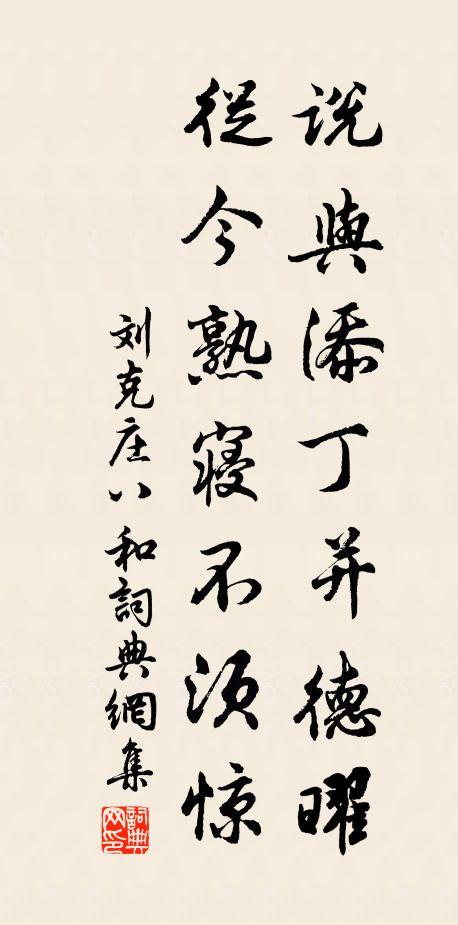 説與添丁并德曜
從今熟寝不須惊
刘克庄八和詞典網集
詞典网印